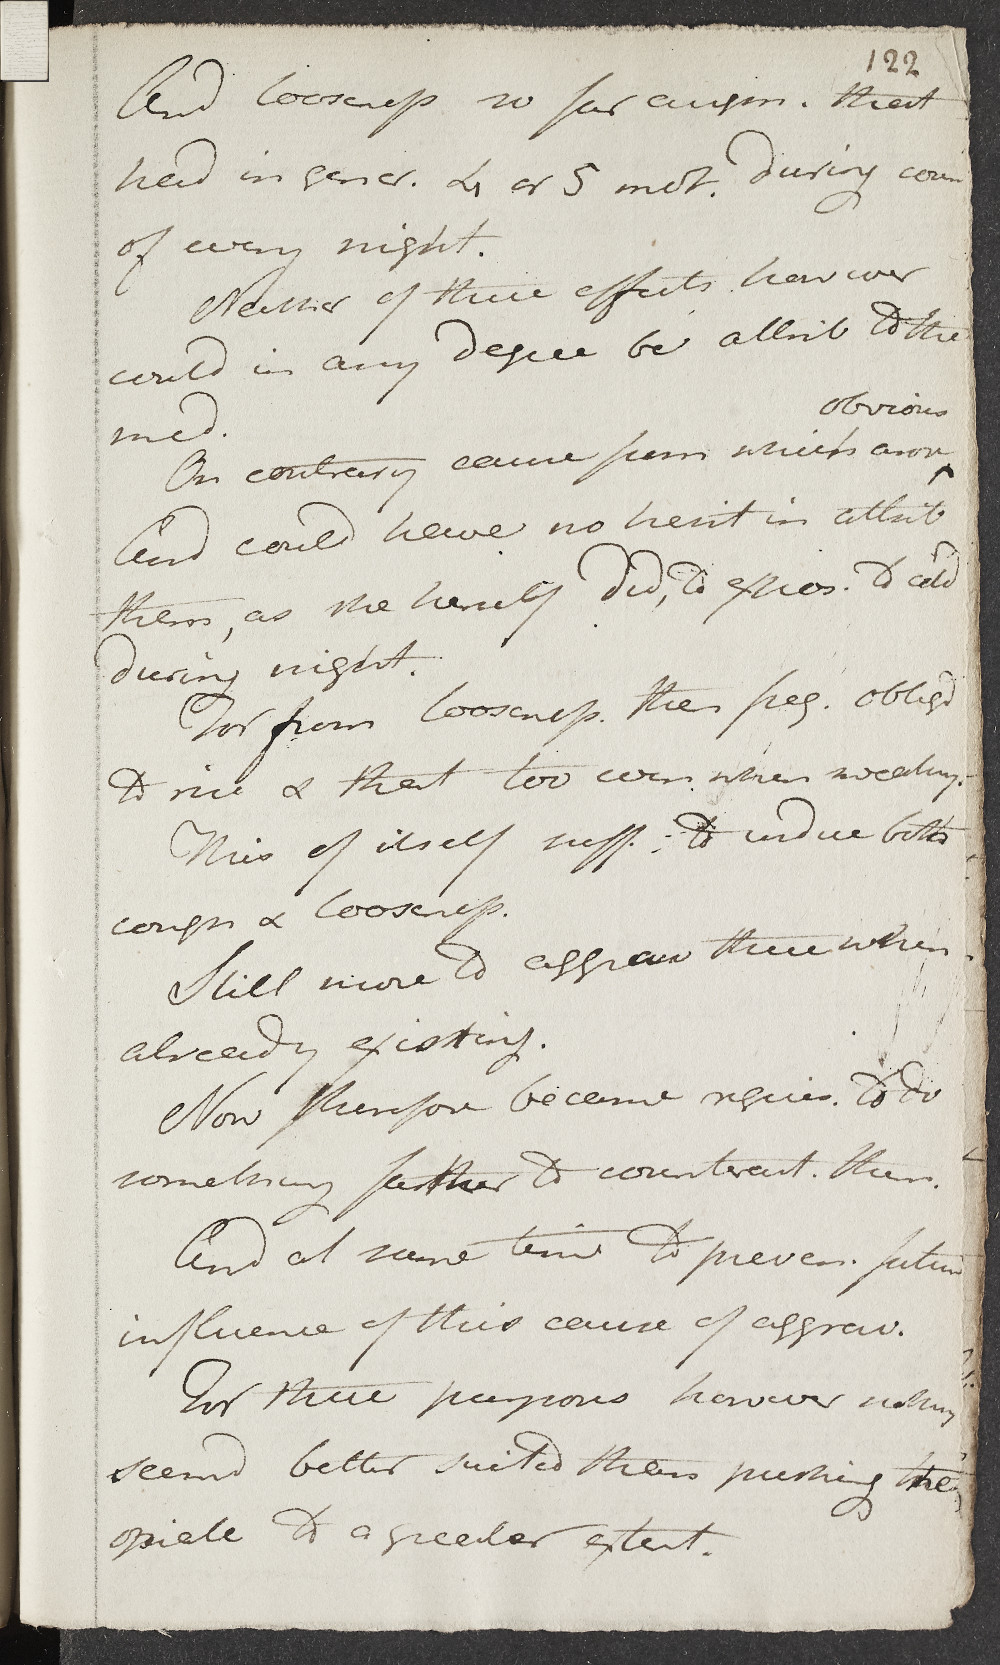 122
And looseness so far augm. that
had in gener. 4 or 5 mot. during cours
of every night.
Neither of these effects however
could in any degree be attrib to the
med.
obvious
On contrary cause from which arose
And could have no hesit in attrib
them, as she herself did, to expos. to cold
during night.
For from looseness. then freq. obligd
to rise & that too even when sweating.
This of itself suff. to induce both
cough & looseness.
Still more to aggrav these when
already existing.
Now therefore became requis. to do
something further to counteract. them.
And at same time to preven. future
influence of this cause of aggrav.
For these purposes however nothing
seemd better suited than pushing the
opiate to a greater extent.